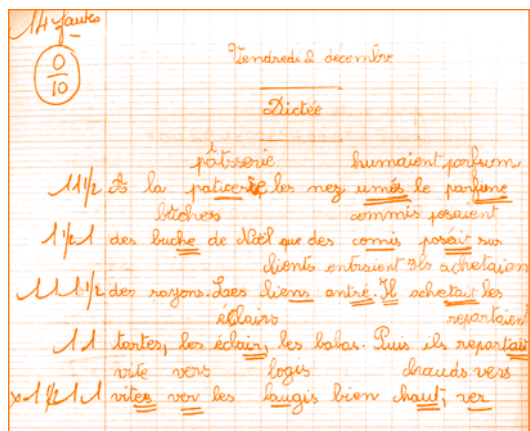 14 fautes
0
10
Vendredi 2 décembre
Dictée
pâtisserie humaient parfum
1 1 1/2 A la paticerie les nez umés le parfume
bûches commis posaient
1 1/2 1 des buche de Noël que des comis posait sur
clients entraient Ils achetaien
1 1 1 1/2 des rayons. Les cliens entré. Il achetait les
éclairs repartaient
1 1 tartes, les éclair, les babas. Puis ils repartait
vite vers logis chauds vers
x 1 1/2 1 1 vites ver les laugis bien chaut, ver